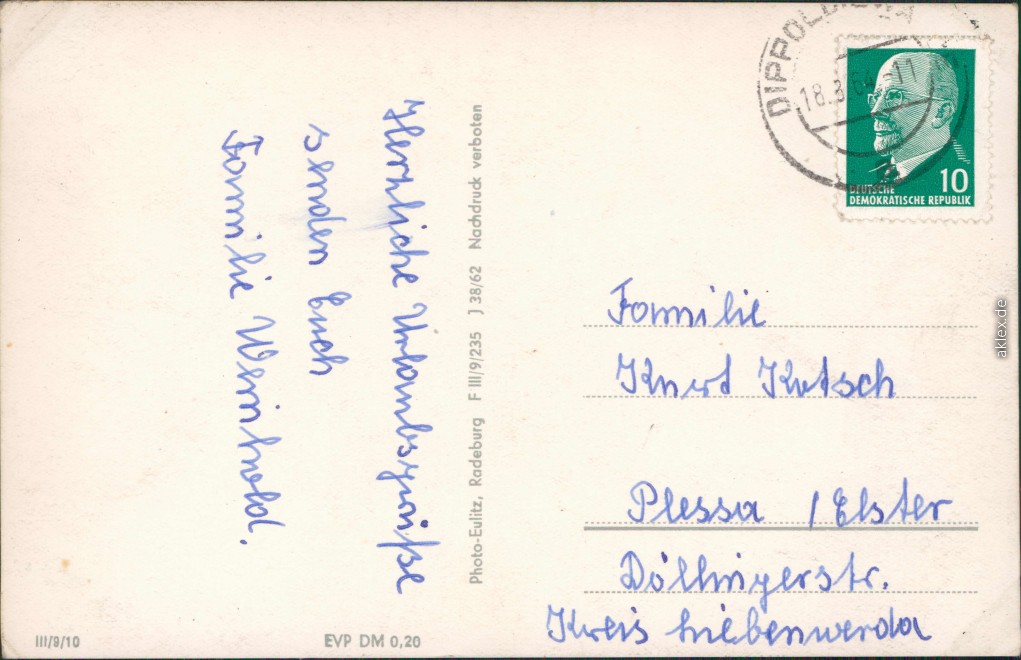 Herzliche Urlaubsgrüße
senden Euch
Familie Weinhold.
Photo-Eulitz, Radeburg F III/9/235 J 38/62 Nachdruck verboten
III/9/10
EVP DM 0,20
18.3.64-11
10
DEUTSCHE
DEMOKRATISCHE REPUBLIK
Familie
Kurt Kotsch
Plessa /Elster
Döllingerstr.
Kreis Liebenwerda
aklex.de